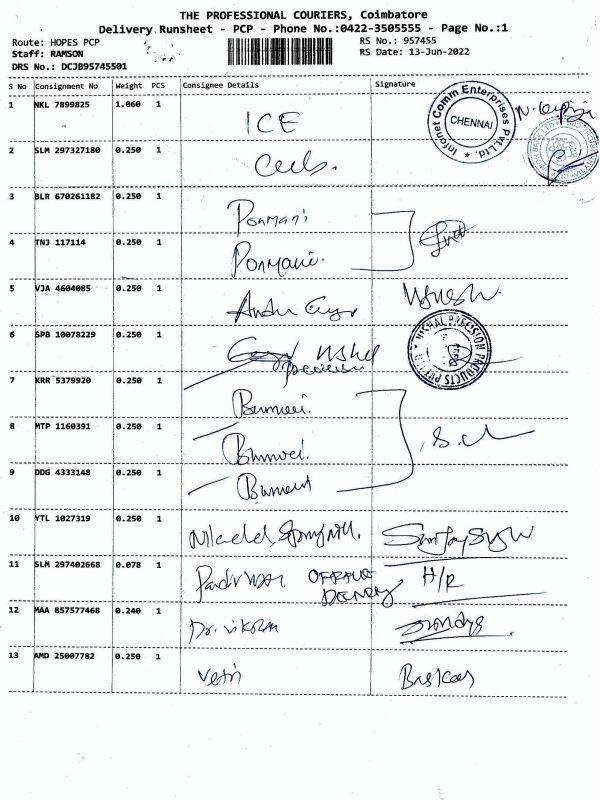 THE PROFESSIONAL COURIERS, Coimbatore
Delivery Runsheet - PCP - Phone No.:0422-3505555 - Page No.:1
Route: HOPES PCP
Staff: RAMSON
DRS No.: DCJB95745501
RS No.: 957455
RS Date: 13-Jun-2022
S No Consignment No Weight PCS Consignee Details Signature
1 NKL 7899825 1.060 1 ICE
Infonet Comm Enterprises Pvt.Ltd. CHENNAI
2 SLM 297327180 0.250 1
3 BLR 670261182 0.250 1 Ponmani
4 TNJ 117114 0.250 1 Ponmani.
5 VJA 4604085 0.250 1
6 SPB 10078229 0.250 1
VISHAL PRECISION PRODUCTS PVT
7 KRR 5379920 0.250 1
8 MTP 1160391 0.250 1
9 DDG 4333148 0.250 1
10 YTL 1027319 0.250 1
11 SLM 297402668 0.078 1 H/R
12 MAA 857577468 0.240 1 Dr. Vikram
13 AMD 25007782 0.250 1 Vetri